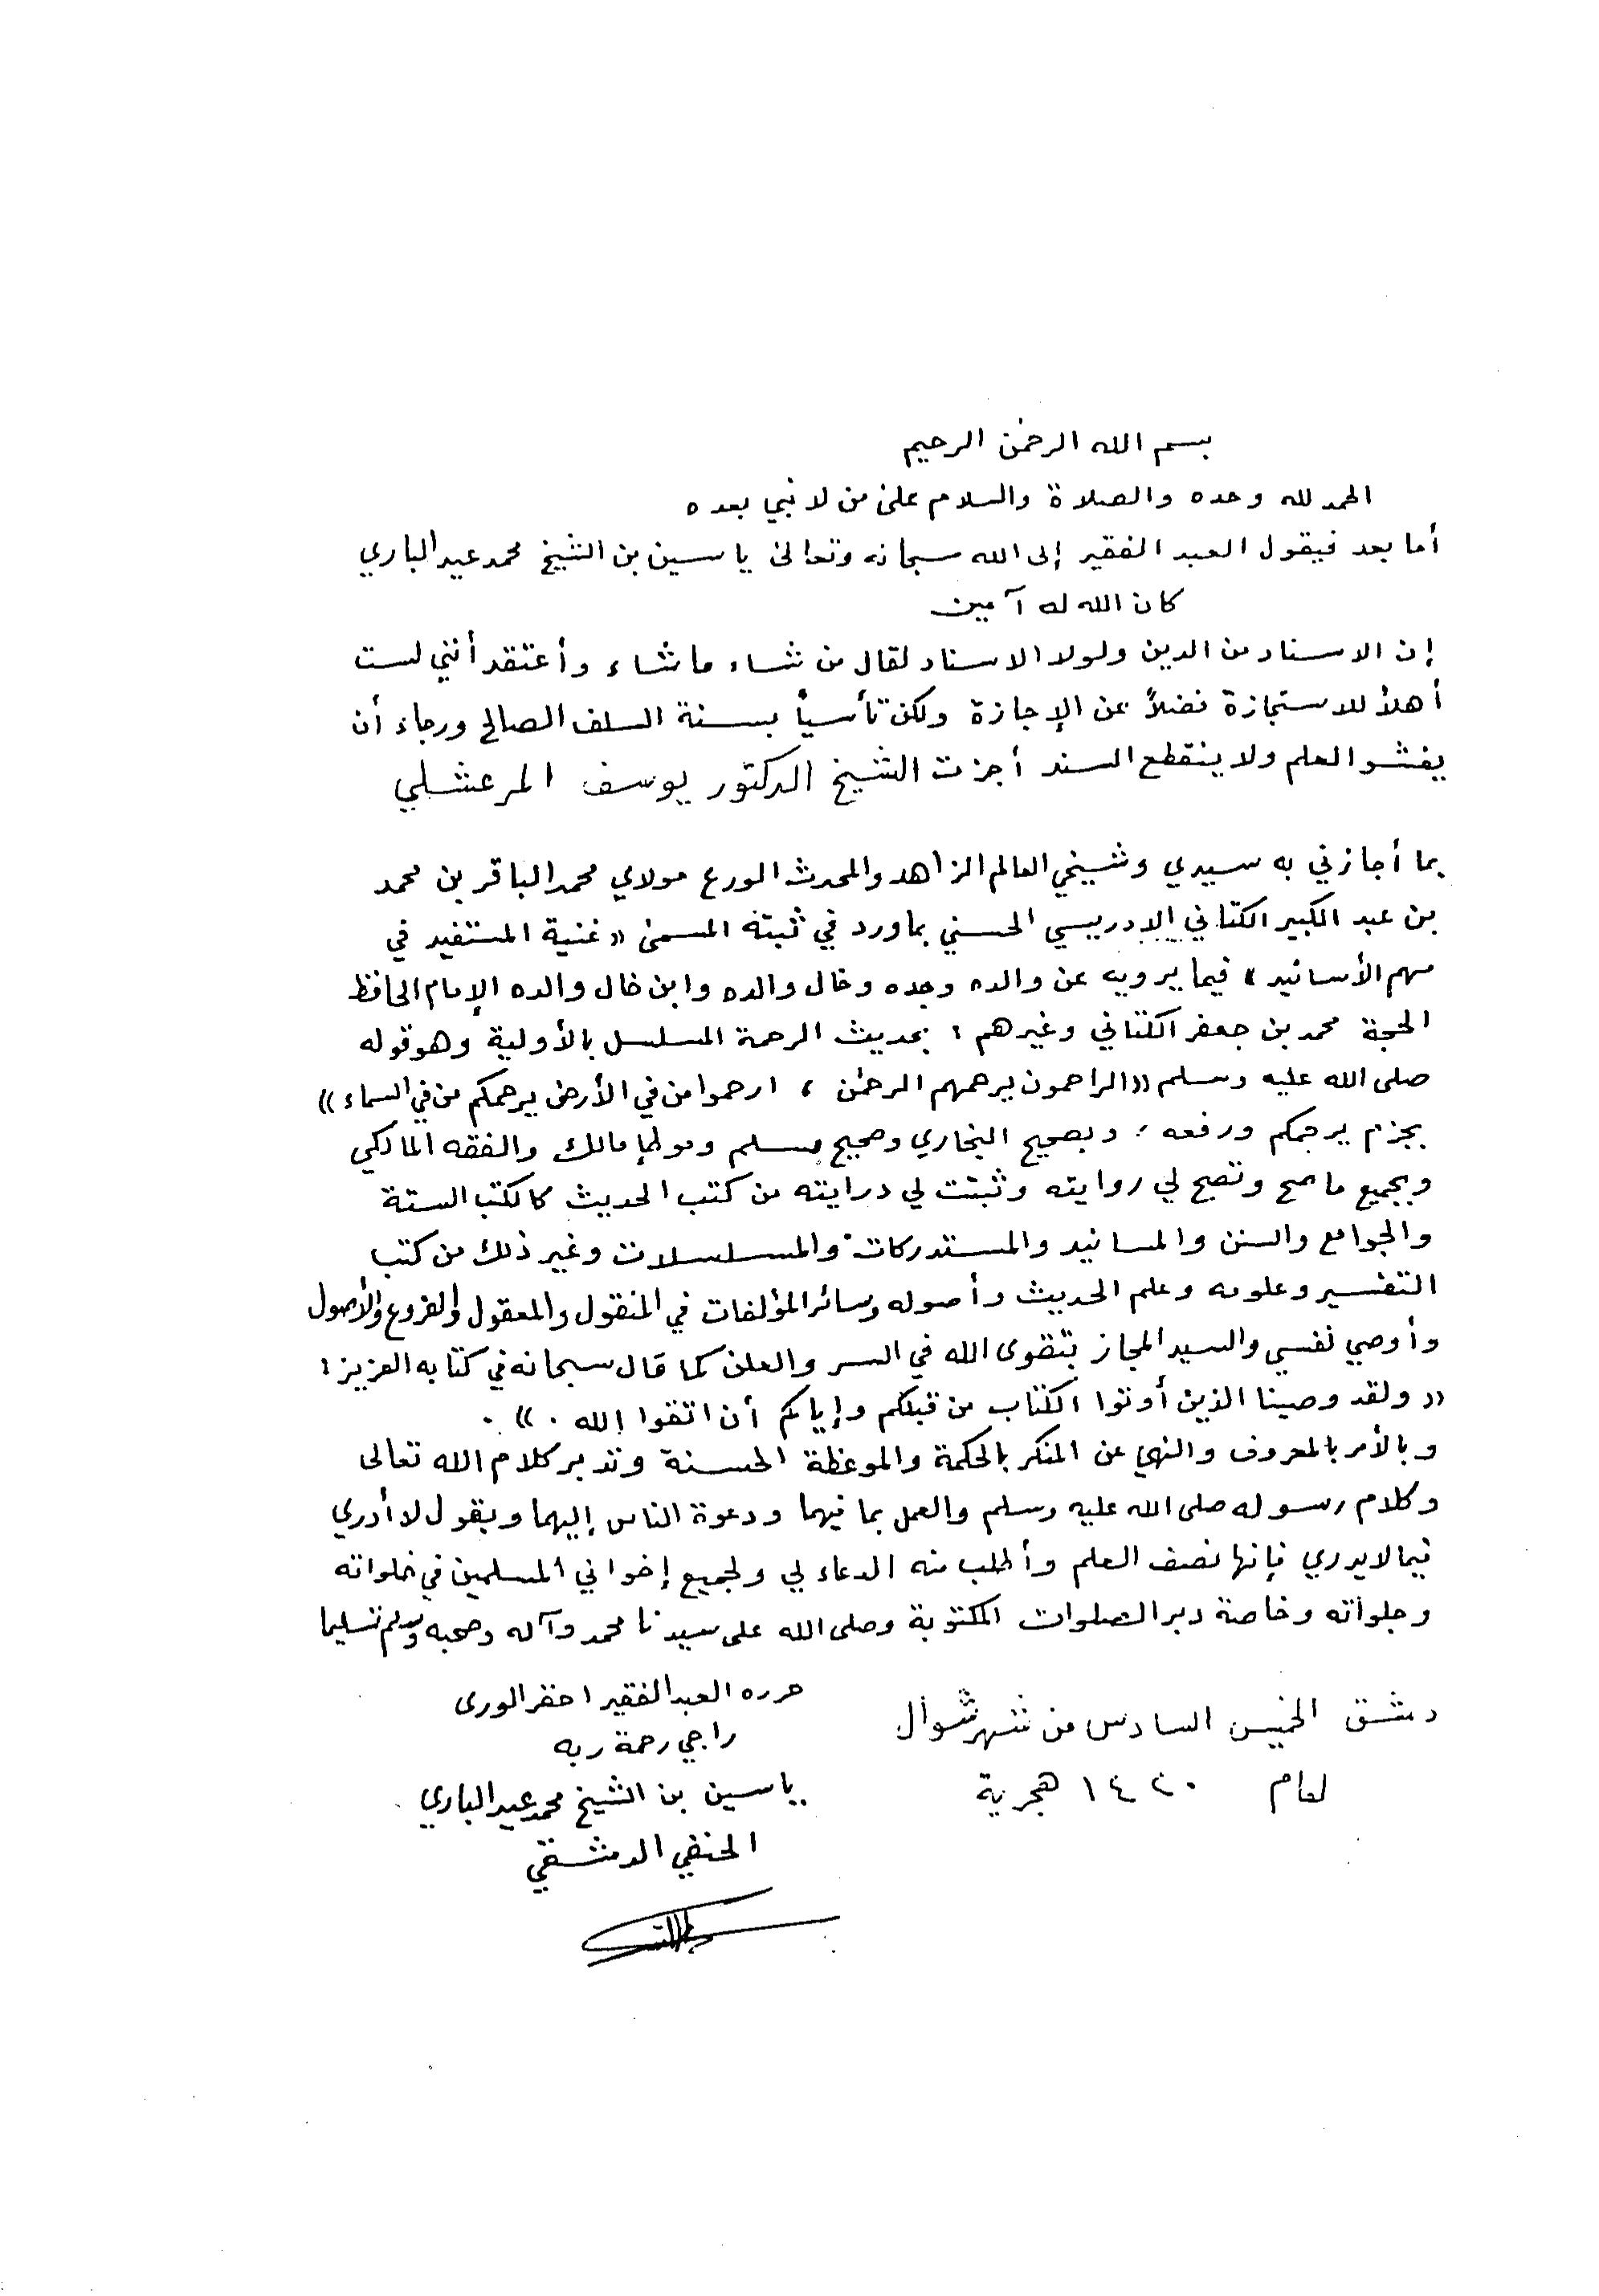 بسم الله الرحمٰن الرحيم
الحمد لله وحده والصلاة والسلام على من لا نبي بعده
أما بعد فيقول العبد الفقير إلى الله سبحانه وتعالى ياسين بن الشيخ محمد عيد الباري
كان الله له آمين
إن الاسناد من الدين ولولا الاسناد لقال من شاء ما شاء وأعتقد أنني لست
أهلاً للاستجازة فضلاً عن الإجازة ولكن تأسياً بسنة السلف الصالح ورجاء أن
يفشو العلم ولا ينقطع السند أجزت الشيخ الدكتور يوسف المرعشلي
بما أجازني به سيدي وشيخي العالم الزاهد والمحدث الورع مولاي محمد الباقر بن محمد
بن عبد الكبير الكتاني الإدريسي الحسني بما ورد في ثبته المسمى «غنية المستفيد في
مهم الأسانيد» فيما يرويه عن والده وجده وخال والده وابن خال والده الإمام الحافظ
الحجة محمد بن جعفر الكتاني وغيرهم ؛ بحديث الرحمة المسلسل بالأولية وهو قوله
صلى الله عليه وسلم «الراحمون يرحمهم الرحمٰن ، ارحموا من في الأرض يرحمكم من في السماء»
بجزم يرحمكم ورفعه ؛ وبصحيح البخاري وصحيح مسلم وموطإ مالك والفقه المالكي
وبجميع ما صح وتصح لي روايته وثبتت لي درايته من كتب الحديث كالكتب الستة
والجوامع والسنن والمسانيد والمستدركات والمسلسلات وغير ذلك من كتب
التفسير وعلومه وعلم الحديث وأصوله وسائر المؤلفات في المنقول والمعقول والفروع والأصول
وأوصي نفسي والسيد المجاز بتقوى الله في السر والعلن كما قال سبحانه في كتابه العزيز :
«ولقد وصينا الذين أوتوا الكتاب من قبلكم وإياكم أن اتقوا الله .» .
وبالأمر بالمعروف والنهي عن المنكر بالحكمة والموعظة الحسنة وتدبر كلام الله تعالى
وكلام رسوله صلى الله عليه وسلم والعمل بما فيهما ودعوة الناس إليهما وبقول لا أدري
فيما لا يدري فإنها نصف العلم وأطلب منه الدعاء لي ولجميع إخواني المسلمين في خلواته
وجلواته وخاصة دبر الصلوات المكتوبة وصلى الله على سيدنا محمد وآله وصحبه وسلم تسليما
دمشق الخميس السادس من شهر شوال
لعام ١٤٢٠ هجرية
حرره العبد الفقير احقر الورى
راجي رحمة ربه
ياسين بن الشيخ محمد عيد الباري
الحنفي الدمشقي